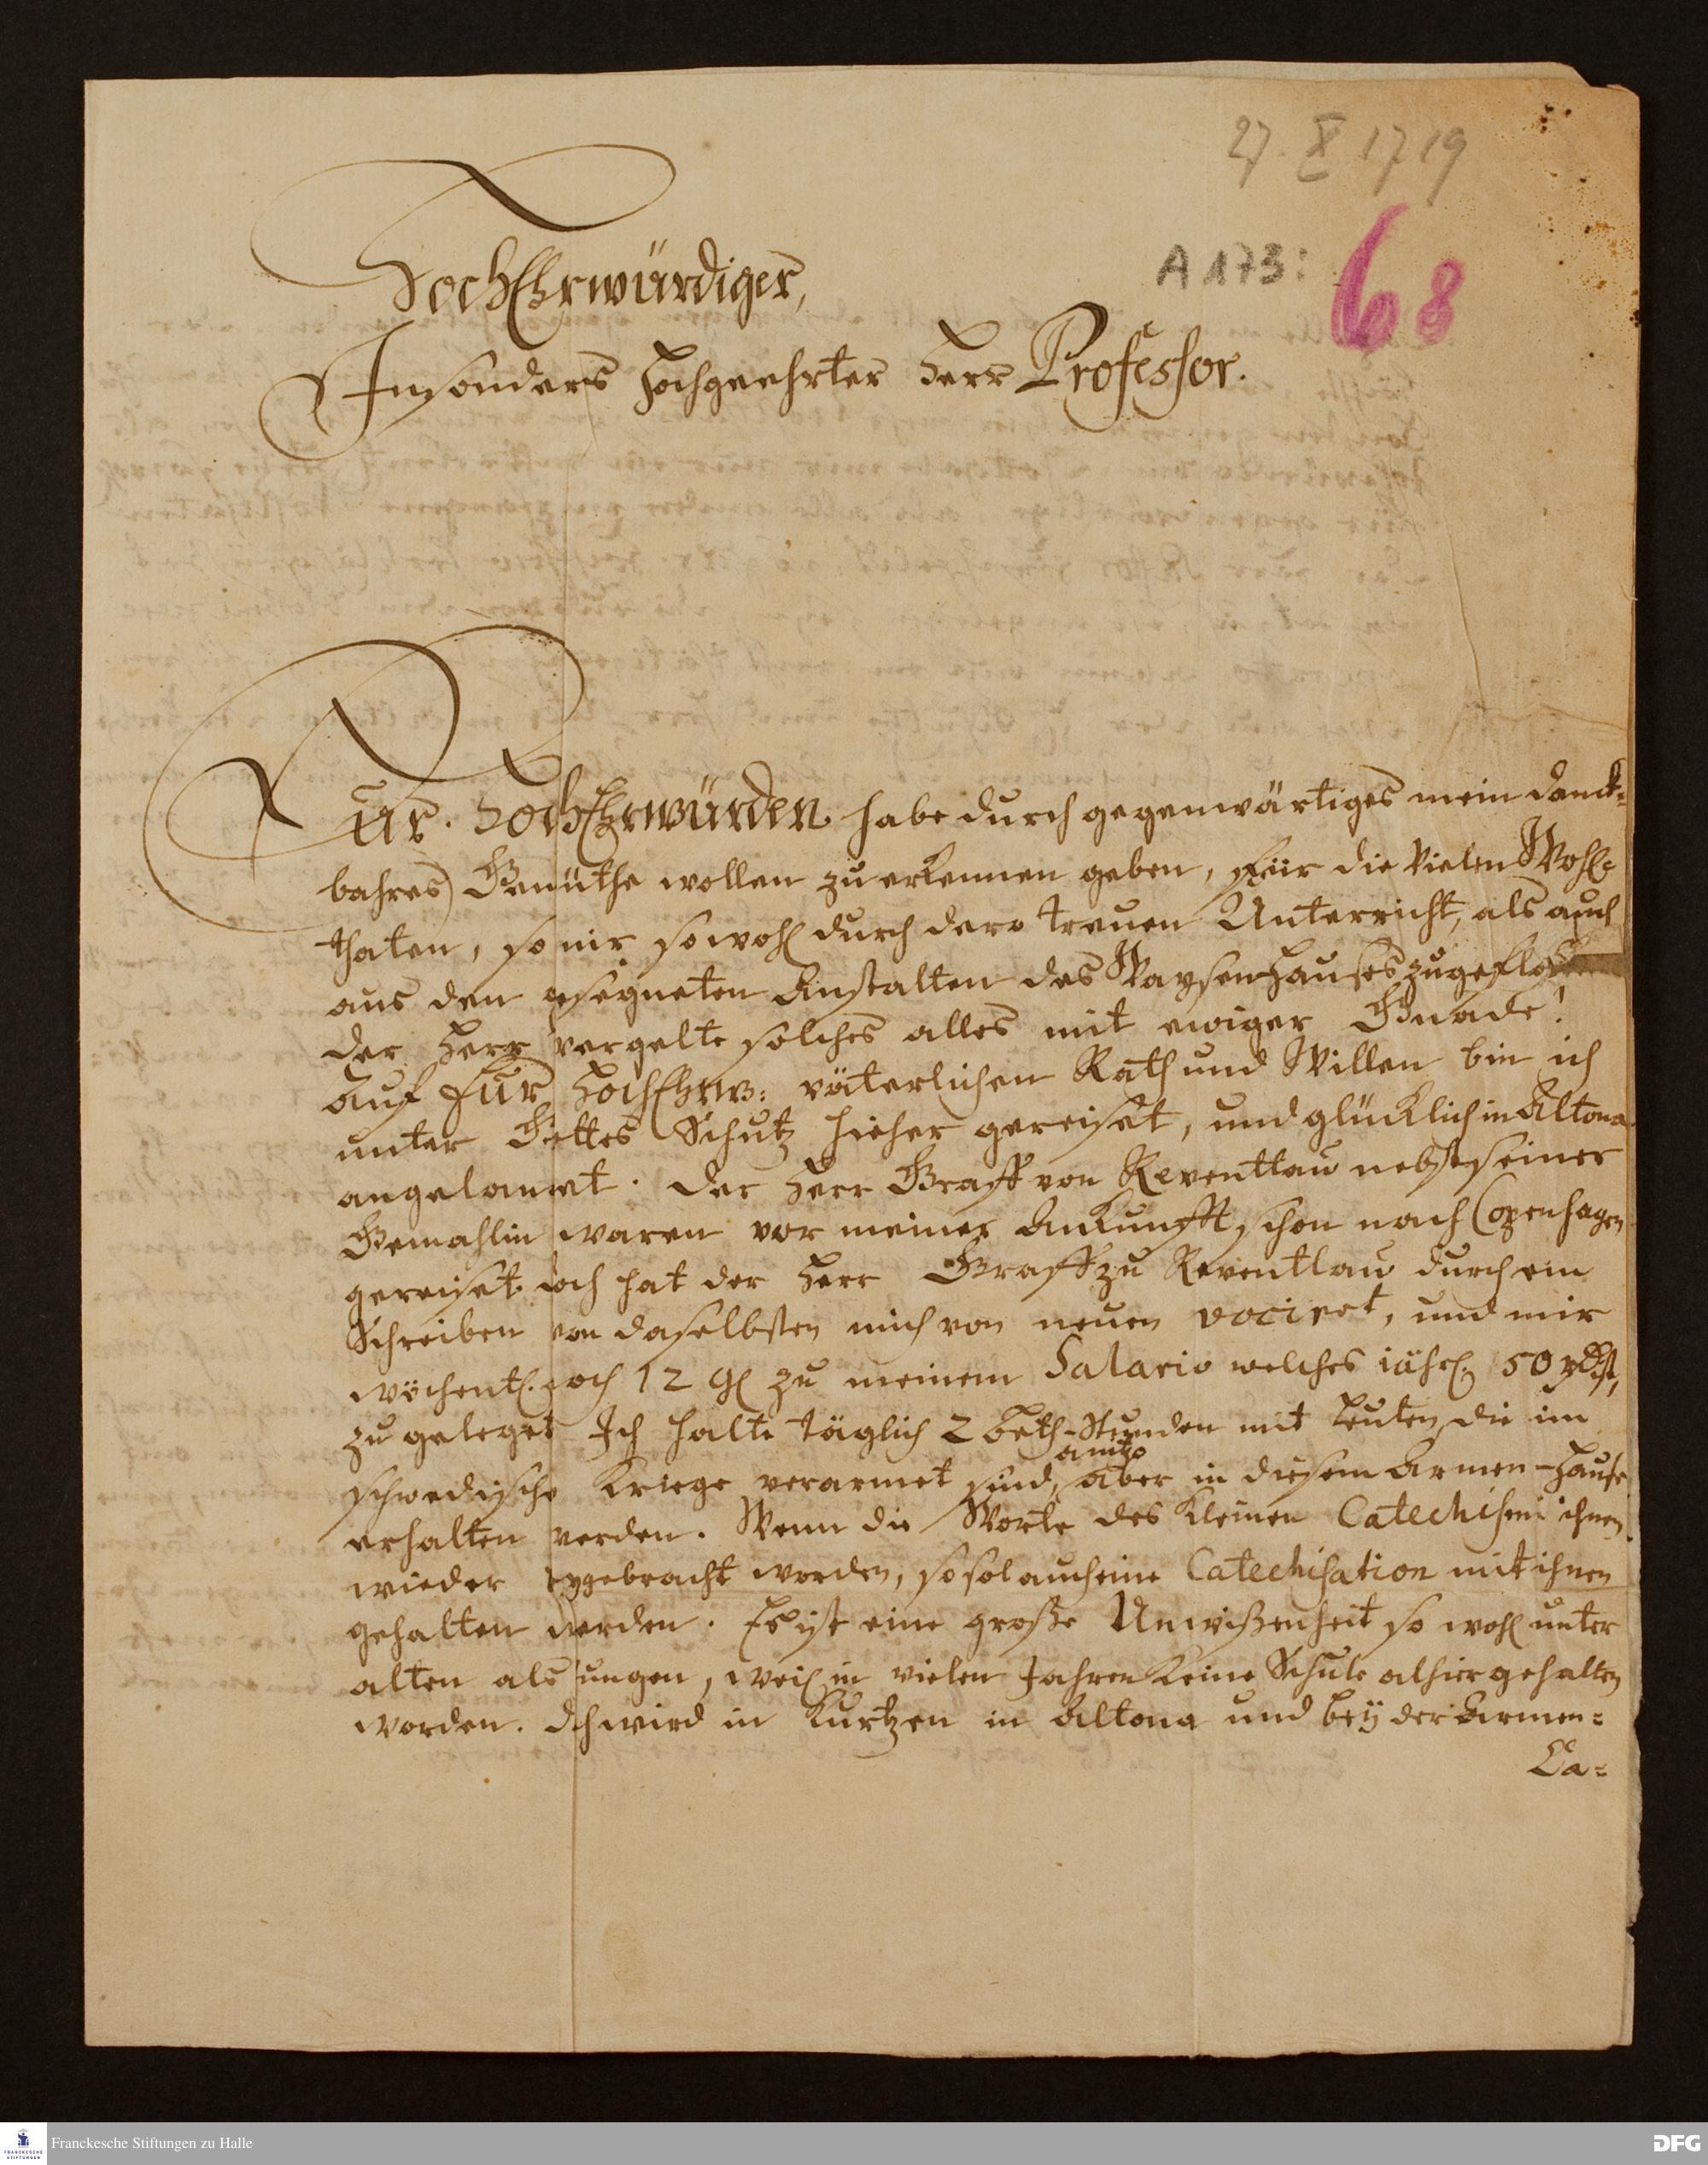 27. X 1719
A 173: 68
HochEhrwürdiger,
Insonders Hochgeehrter Herr Professor.
Eur. HochEhrwürden habe durch gegenwärtiges mein danck-
bahres Gemüthe wollen zu erkennen geben, für die vielen Wohl-
thaten, so mir so wohl durch dero treuen Unterricht, als auch
aus den gesegneten Anstalten des Waysenhauses zugefloßen
der Herr vergelte solches alles mit ewiger Gnade!
Auf Eur HochEhrw: väterlichen Rath und Willen bin ich
unter Gottes Schutz hieher gereiset, und glücklich in Altona
angelanget. Der Herr Graff von Reventlau nebst seiner
Gemahlin waren vor meiner Ankunfft schon nach Copenhagen
gereiset. doch hat der Herr Graff zu Reventlau durch ein
Schreiben von daselbsten mich von neuen vociret, und mir
wöchentl. noch 12 gl zu meinem Salario welches jährl. 50 rthl,
zu geleget Ich halte täglich 2 Beth-Stunden mit Leuten die im
schwedische Kriege verarmet sind, anitzo aber in diesem Armen-Hause
erhalten werden. Wenn die Worte des kleinen Catechismi ihnen
wieder beygebracht worden, so sol auch eine Catechisation mit ihnen
gehalten werden. Es ist eine große Unwißenheit so wohl unter
alten als jungen, weil in vielen Jahren keine Schule alhier gehalten
worden. Es wird in kurtzen in Altona und bey der Armen-
Ca-
Franckesche Stiftungen zu Halle
FRANCKESCHE STIFTUNGEN
DFG